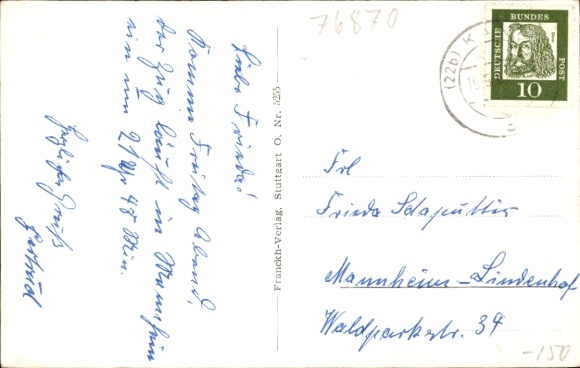 76870
Liebe Frieda!
Komme Freitag Abend,
der Zug läuft in Mannheim
ein um 21 Uhr 48 Min.
Herzlichen Gruß
Gertrud
Franckh-Verlag, Stuttgart O, Nr. 5255
(22b) K
DEUTSCHE BUNDESPOST
10
Frl
Frieda
Mannheim-Lindenhof
Waldparkstr. 34
-150